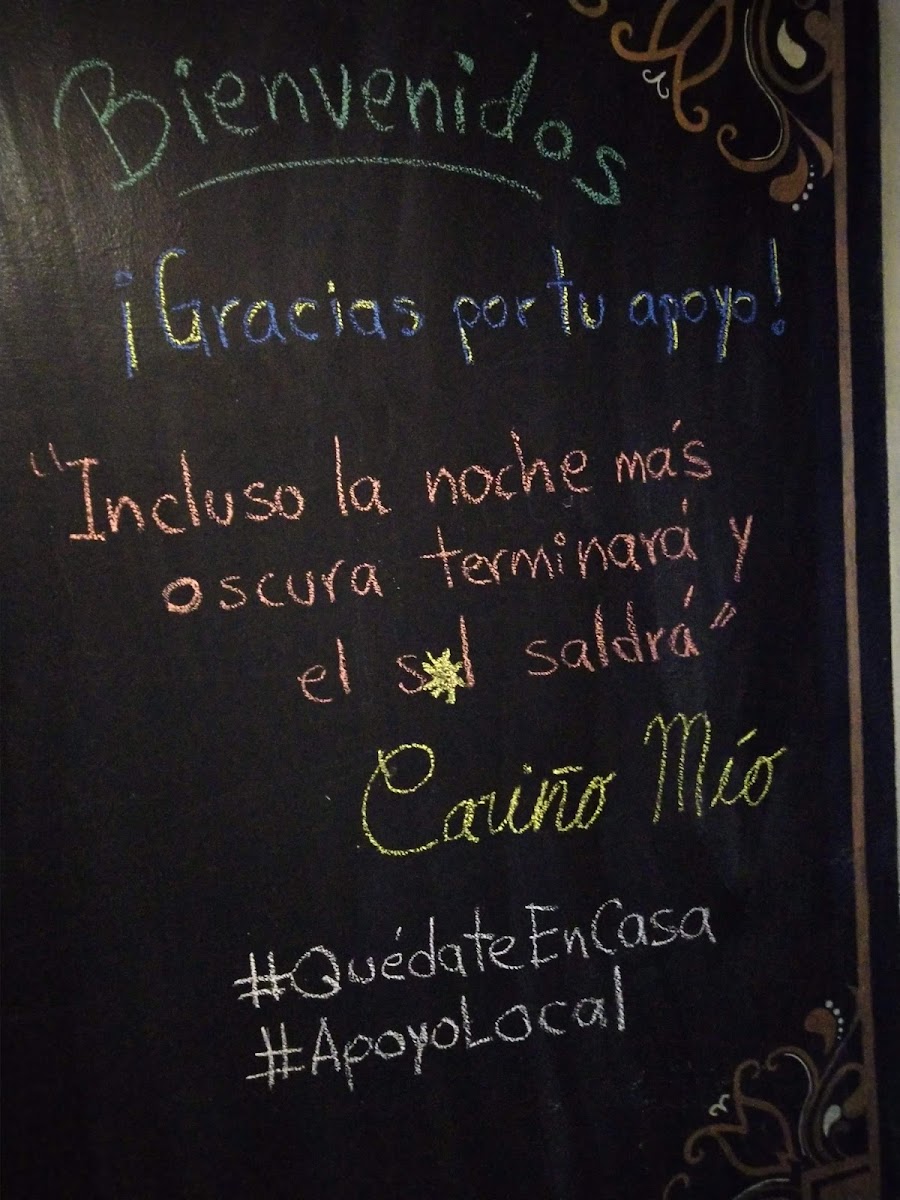 Bienvenidos
¡Gracias por tu apoyo!
"Incluso la noche más
oscura terminará y
el sol saldrá"
Cariño Mío
#QuédateEnCasa
#ApoyoLocal